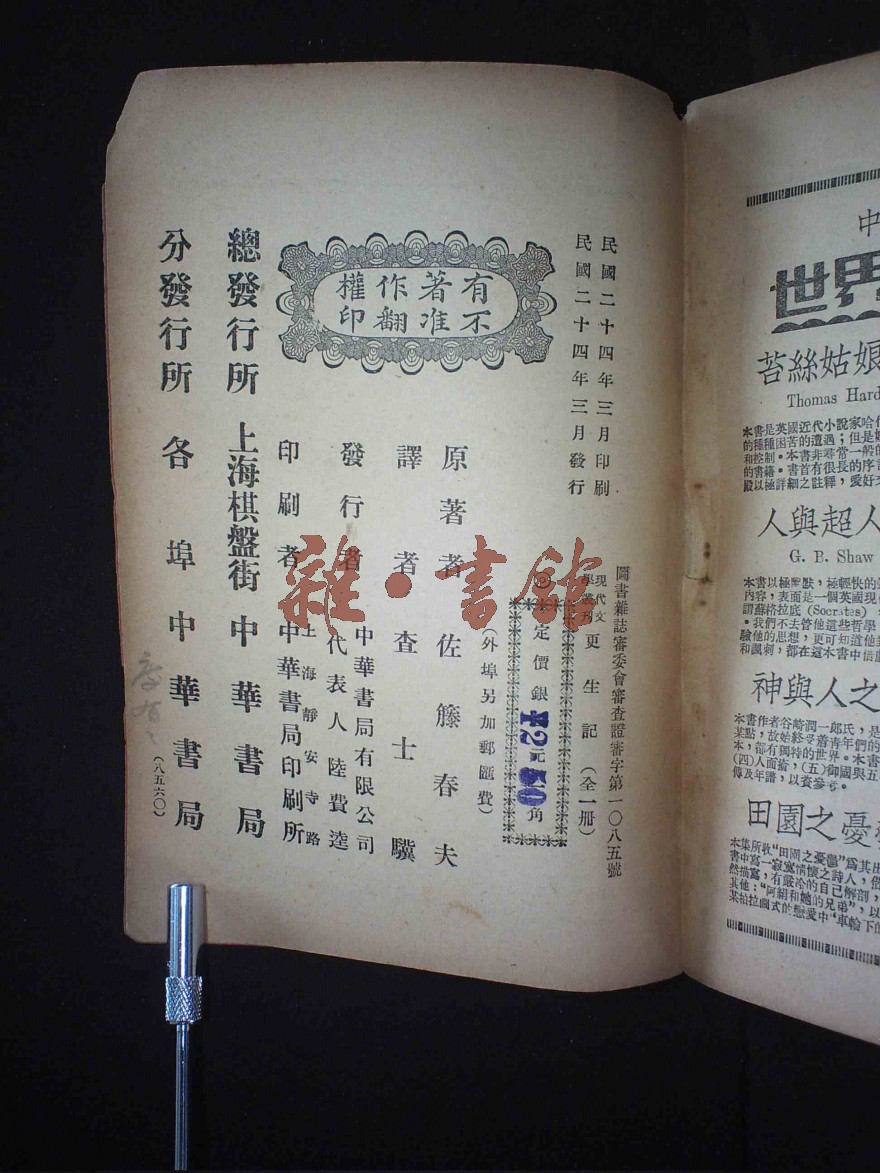 民國二十四年三月印刷
民國二十四年三月發行
圖書雜誌審委會審查證審字第一〇八五號
現代文學叢刊
更生記（全一冊）
定價銀
元
角
¥2.50
（外埠另加郵匯費）
有著作權
不准翻印
原著者 佐籐春夫
譯者 查士驥
發行者 中華書局有限公司
代表人陸費逵
印刷者 上海靜安寺路
中華書局印刷所
總發行所 上海棋盤街 中華書局
分發行所 各埠中華書局
（八五六〇）
雜·書館
中
世界
苔絲姑娘
Thomas Hard
本書是英國近代小說家哈代
的種種困苦的遭遇；但是
和控制。本書非尋常一般的
的書籍。書首有很長的序
殿以極詳細之註釋，愛好
人與超人
G. B. Shaw
本書以極幽默，極輕快的
內容，表面是一個英國現
謂蘇格拉底 (Socrates)
。我們不去管他這些哲學
驗他的思想，更可知道他
和諷刺，都在這本書中
神與人之
本書作者谷崎潤一郎氏，是
某點，故始終受着青年們的
本，都有獨特的世界。本書
(四)人面瘡，(五)御國與五
傳及年譜，以資參考。
田園之憂
本集所收"田園之憂鬱"爲其
書中寫一寂寞情懷之詩人，
然描寫，有嚴冷的自己解剖，
其他："阿絹和她的兄弟"，以
某拍拉圖式的戀愛中"車輪下的